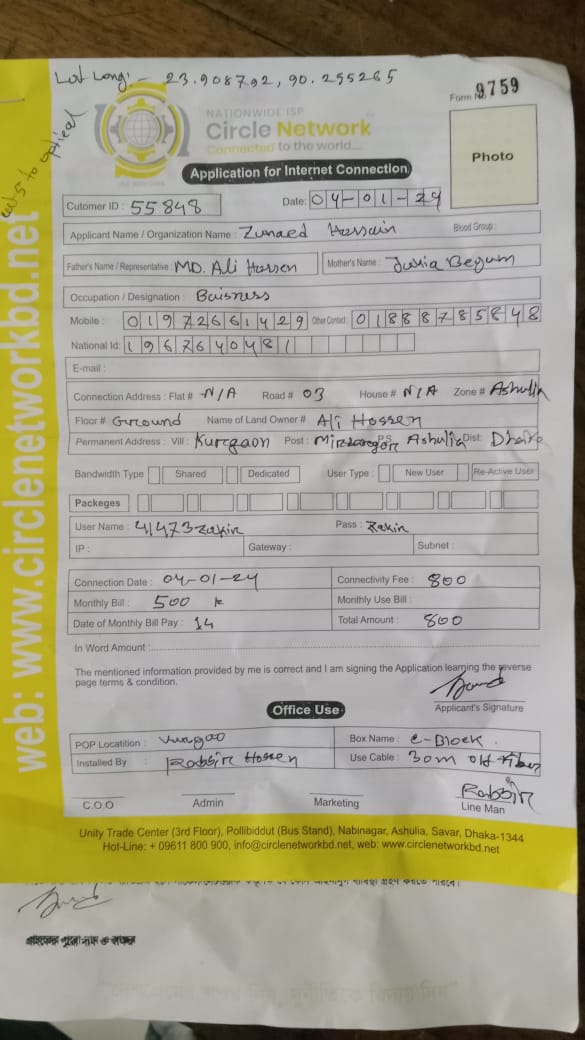 Lat Long: - 23.908792, 90.255265
Form No 9759
NATIONWIDE ISP
Circle Network
Connected to the world...
Photo
Application for Internet Connection
Cutomer ID : 55848
Date: 04-01-24
Applicant Name / Organization Name : Zunaed Hussain
Blood Group :
Father's Name / Representative : MD. Ali Hossen
Mother's Name : Julia Begum
Occupation / Designation : Baisness
Mobile : 01972661429 Other Contact : 01888785848
National Id: 1967640481
E-mail :
Connection Address : Flat # N/A Road # 03 House # N/A Zone # Ashulia
Floor # Ground Name of Land Owner # Ali Hossen
Permanent Address : Vill : Kurgaon Post : P.S Ashulia Dist: Dhaka
Bandwidth Type Shared Dedicated User Type : New User Re-Active User
Packeges
User Name : 41473zakir Pass :
IP : Gateway : Subnet :
Connection Date : 04-01-24 Connectivity Fee : 800
Monthly Bill : 500 Monthly Use Bill :
Date of Monthly Bill Pay : 14 Total Amount : 800
In Word Amount :
The mentioned information provided by me is correct and I am signing the Application learning the reverse
page terms & condition.
Applicant's Signature
Office Use
POP Locatition : Box Name : C-Block
Installed By : Rabbir Hossen Use Cable : 30m old fiber
Rabbir
C.O.O Admin Marketing Line Man
Unity Trade Center (3rd Floor), Pollibiddut (Bus Stand), Nabinagar, Ashulia, Savar, Dhaka-1344
Hot-Line: + 09611 800 900, info@circlenetworkbd.net, web: www.circlenetworkbd.net
web: www.circlenetworkbd.net